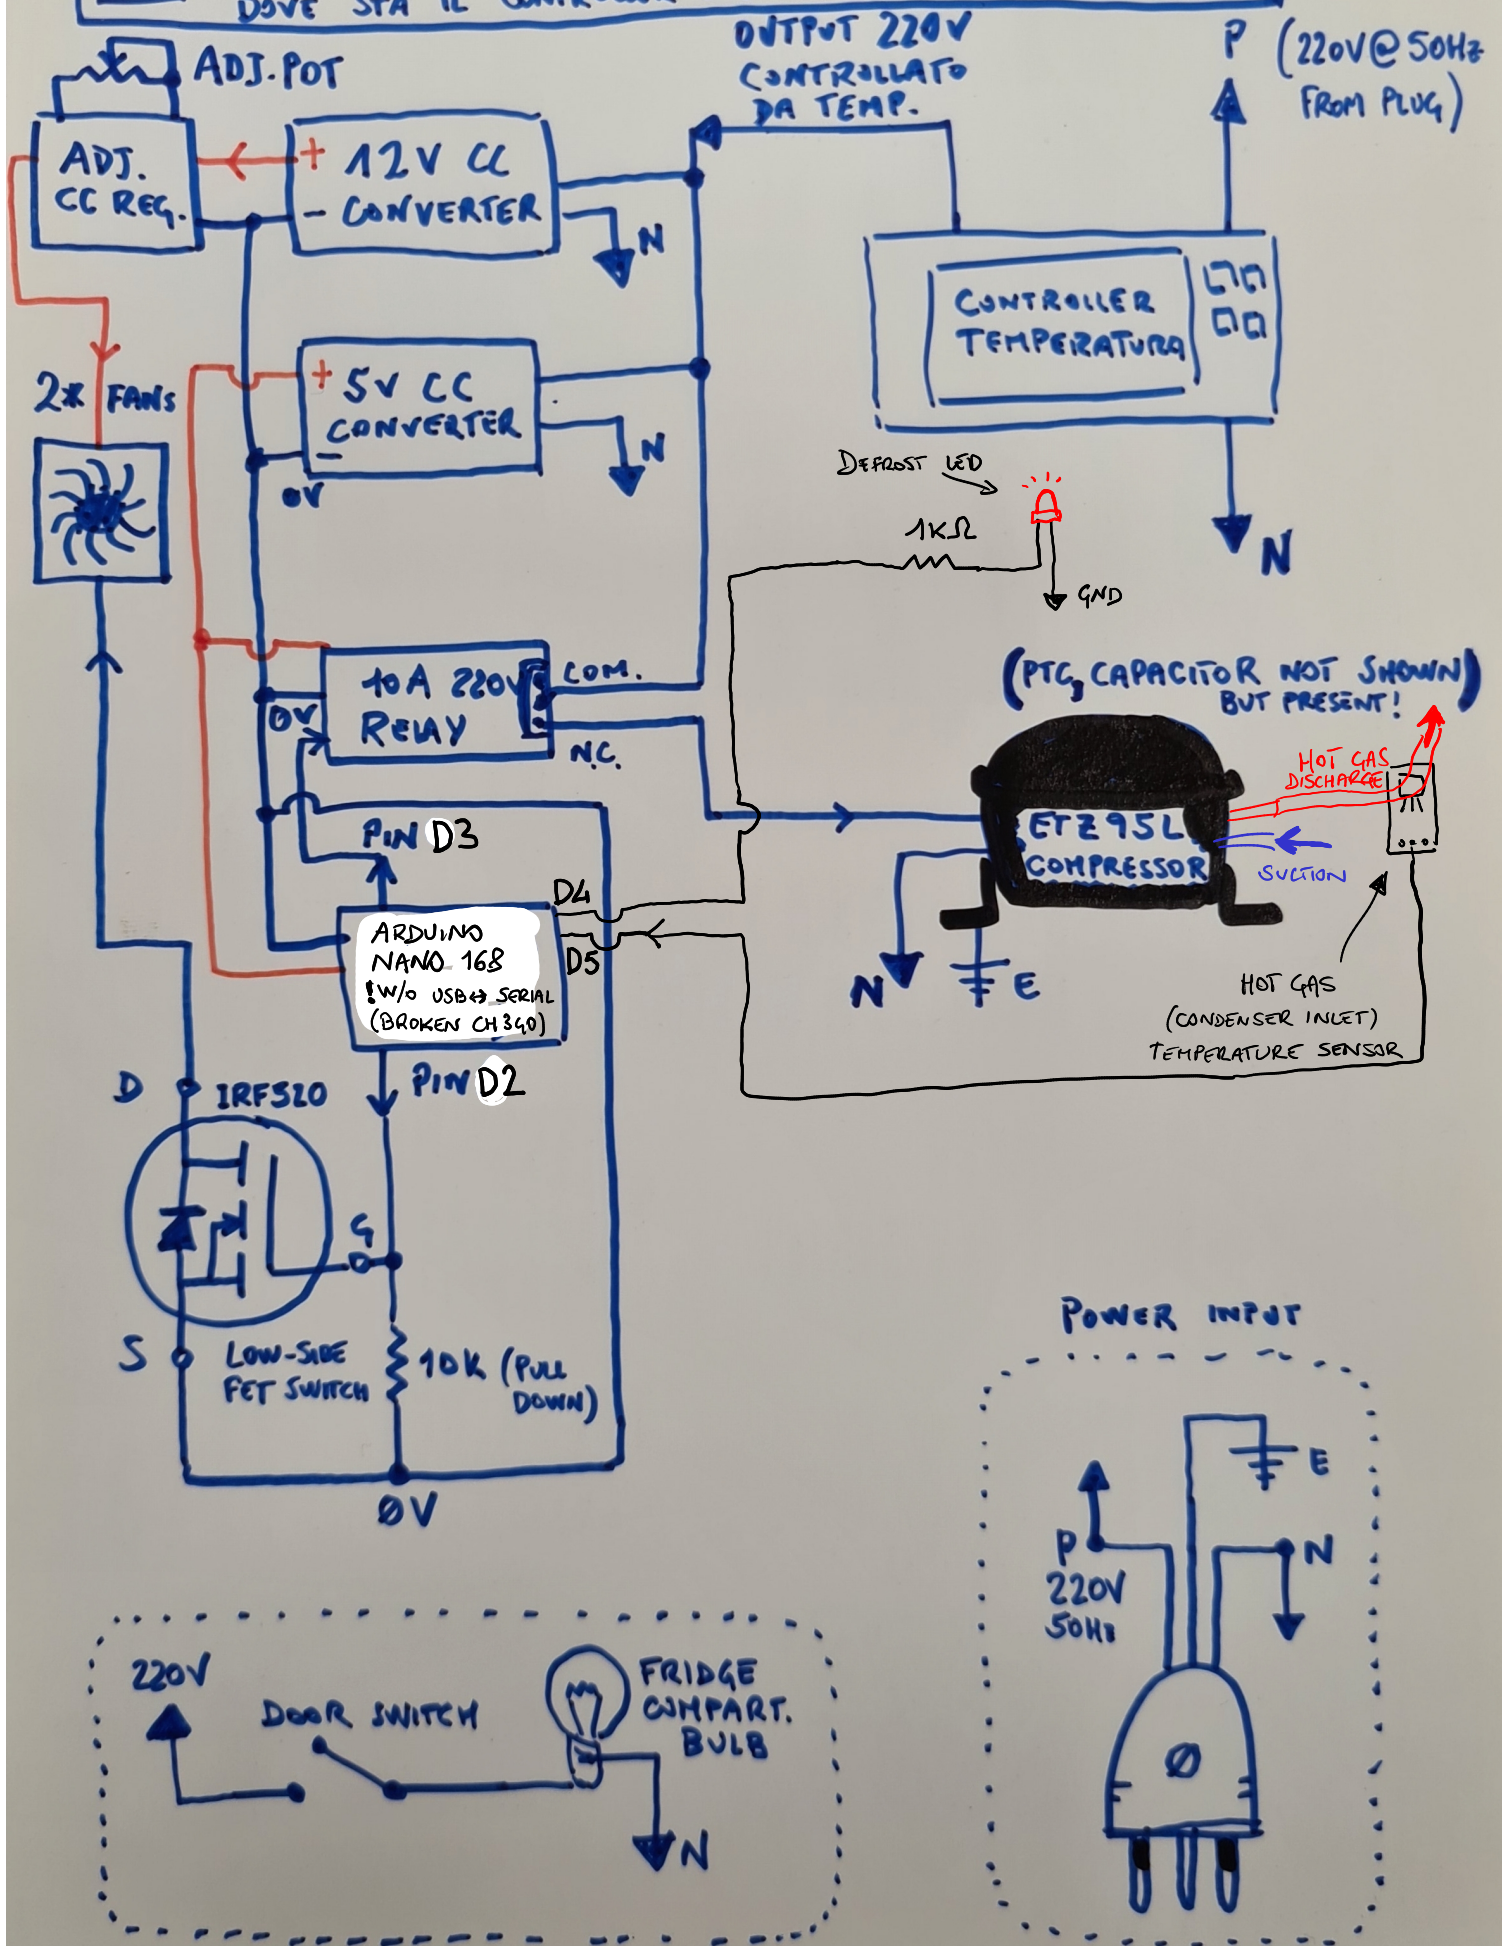 DOVE STA IL
ADJ. POT
OUTPUT 220V
CONTROLLATO
DA TEMP.
P (220V@50Hz
FROM PLUG)
ADJ.
CC REG.
+ 12V CC
- CONVERTER
N
CONTROLLER
TEMPERATURA
2* FANS
+ 5V CC
CONVERTER
-
0V
N
DEFROST LED
1KΩ
GND
N
10A 220V
RELAY
0V
COM.
N.C.
(PTC, CAPACITOR NOT SHOWN)
BUT PRESENT!
HOT GAS
DISCHARGE
ETZ95L
COMPRESSOR
SUCTION
N
E
PIN D3
D4
D5
ARDUINO
NANO 168
!W/O USB↔SERIAL
(BROKEN CH340)
HOT GAS
(CONDENSER INLET)
TEMPERATURE SENSOR
PIN D2
D
IRF520
G
S
LOW-SIDE
FET SWITCH
10K (PULL
DOWN)
ØV
POWER INPUT
E
P
220V
50Hz
N
Ø
220V
DOOR SWITCH
FRIDGE
COMPART.
BULB
N